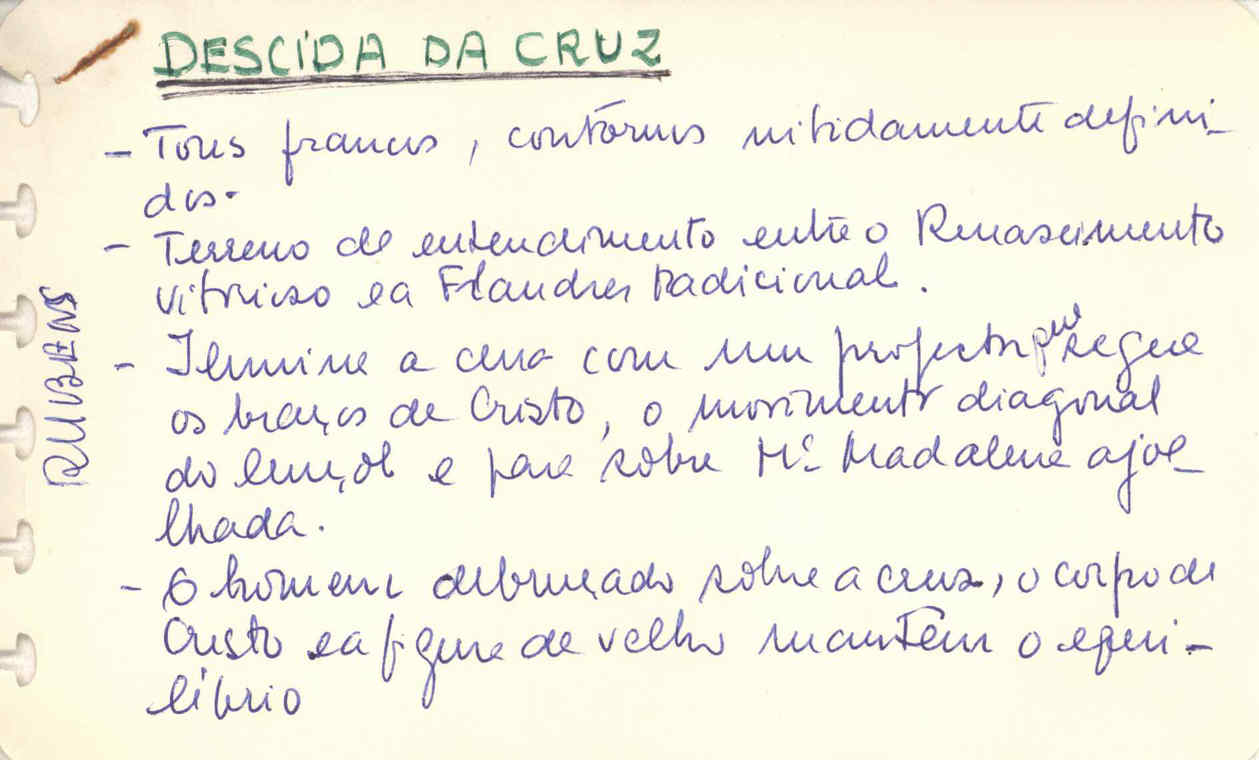 DESCIDA DA CRUZ
RUBENS
- Tons francos, contornos nitidamente defini-
dos.
- Terreno de entendimento entre o Renascimento
vitorioso e a Flandres tradicional.
- Ilumina a cena com um projector que segue
os braços de Cristo, o movimento diagonal
do lençol e para sobre Mª Madalena ajoe-
lhada.
- O homem debruçado sobre a cruz, o corpo de
Cristo e a figura de velho mantêm o equi-
líbrio